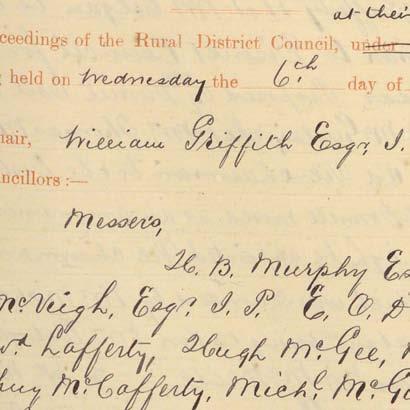 at their
ceedings of the Rural District Council, under
g held on Wednesday the 6th day of
hair, William Griffith Esqr. J.
ncillors :—
Messers,
H. B. Murphy Es
McVeigh, Esqr. J. P. E. O. D
wd Lafferty, Hugh McGee,
hny McCafferty, Michl. McG